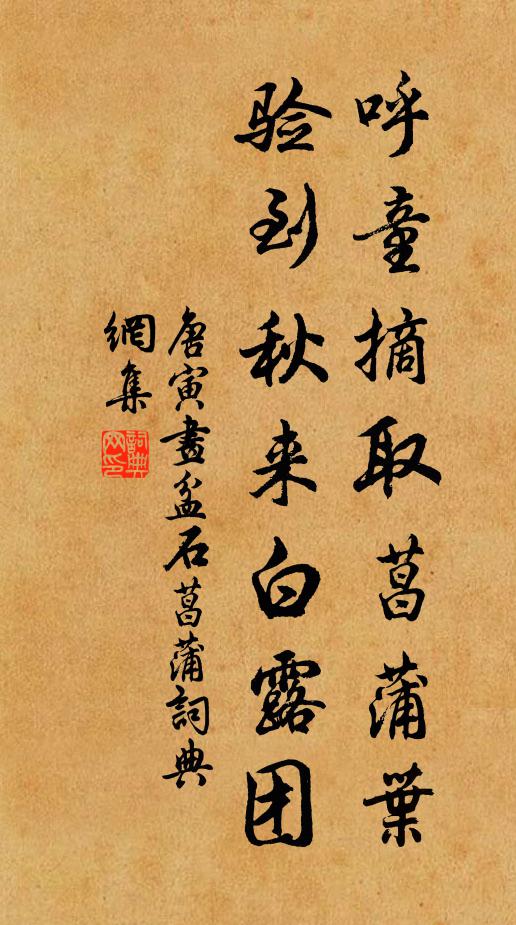 呼童摘取菖蒲葉
验到秋来白露团
唐寅畫盆石菖蒲詞典
網集
詞典
网印